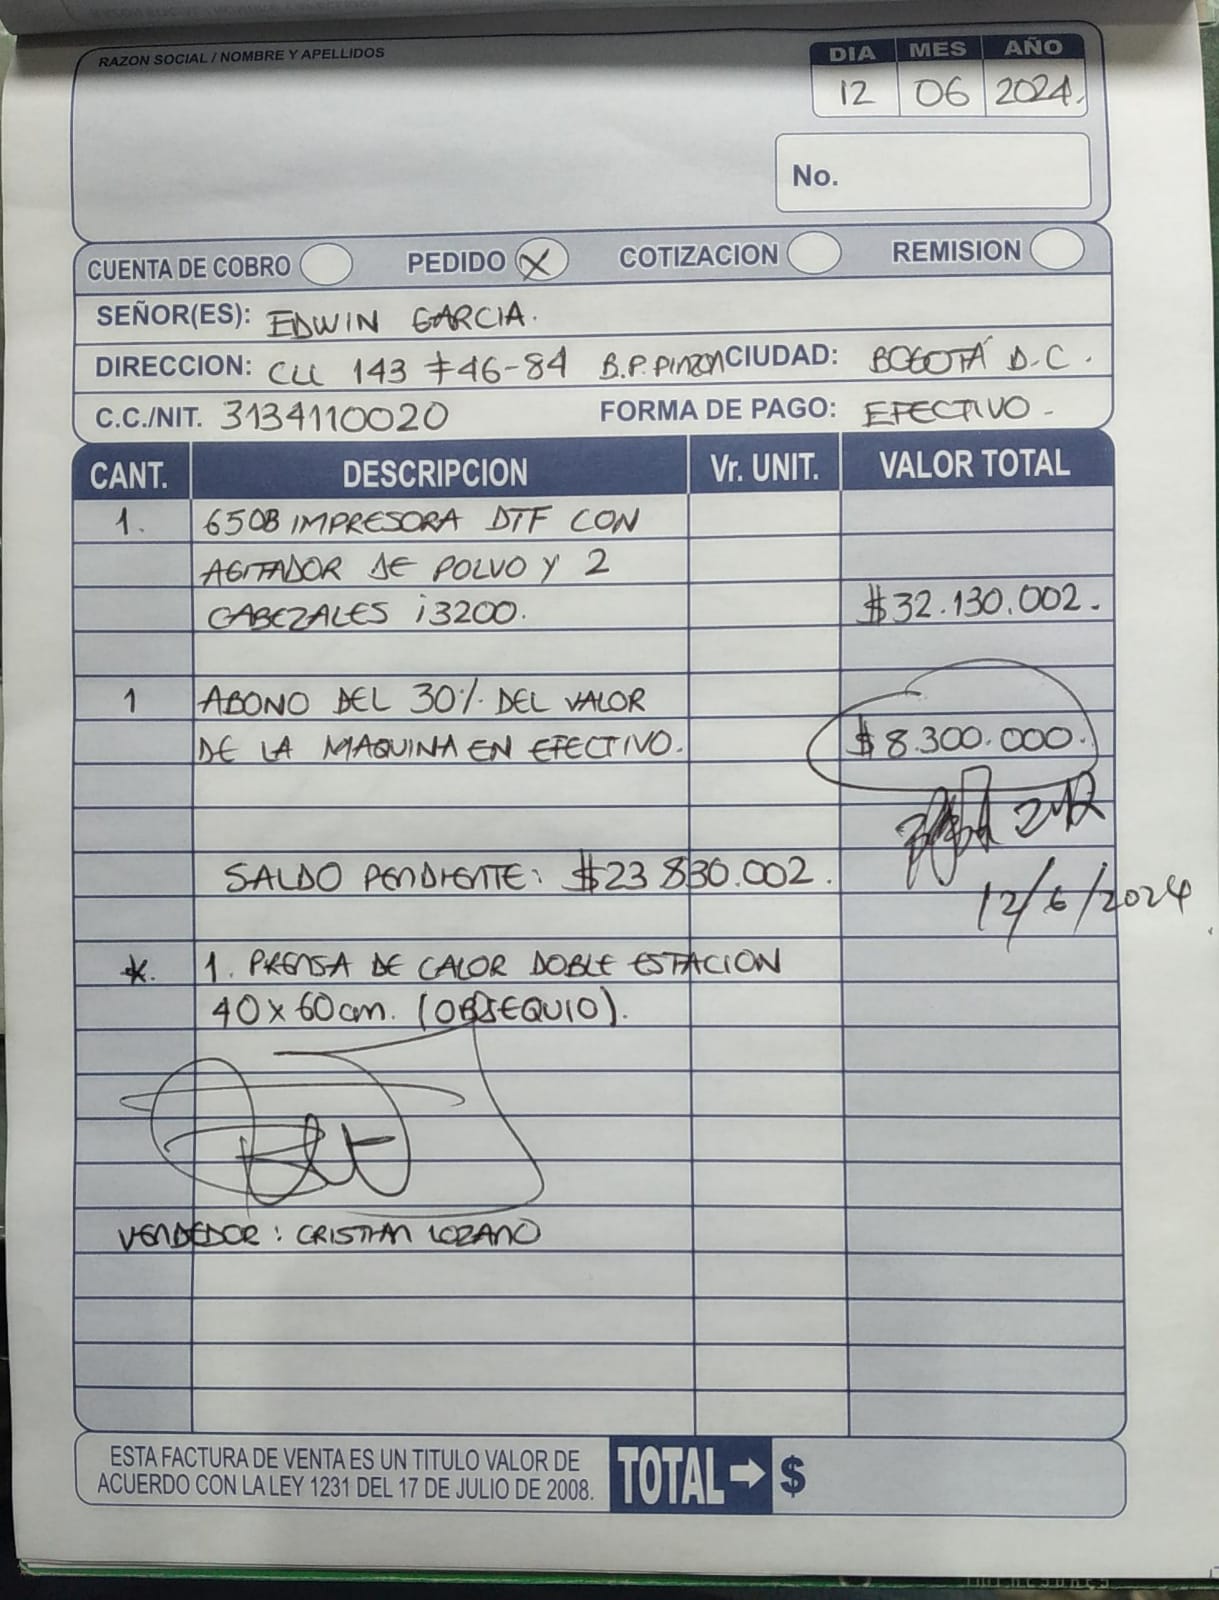 RAZON SOCIAL / NOMBRE Y APELLIDOS
DIA MES AÑO
12 06 2024.
No.
CUENTA DE COBRO PEDIDO X COTIZACION REMISION
SEÑOR(ES): EDWIN GARCIA.
DIRECCION: CLL 143 #46-84 B.P. PINZON CIUDAD: BOGOTÁ D.C.
C.C./NIT. 3134110020 FORMA DE PAGO: EFECTIVO -
CANT. DESCRIPCION Vr. UNIT. VALOR TOTAL
1. 650B IMPRESORA DTF CON
AGITADOR DE POLVO Y 2
CABEZALES i3200. $32.130.002.
1 ABONO DEL 30% DEL VALOR
DE LA MAQUINA EN EFECTIVO. $8.300.000.
SALDO PENDIENTE: $23 830.002.
12/6/2024
*. 1. PRENSA DE CALOR DOBLE ESTACION
40x60cm. (OBSEQUIO).
VENDEDOR: CRISTIAN LOZANO
ESTA FACTURA DE VENTA ES UN TITULO VALOR DE
ACUERDO CON LA LEY 1231 DEL 17 DE JULIO DE 2008.
TOTAL → $